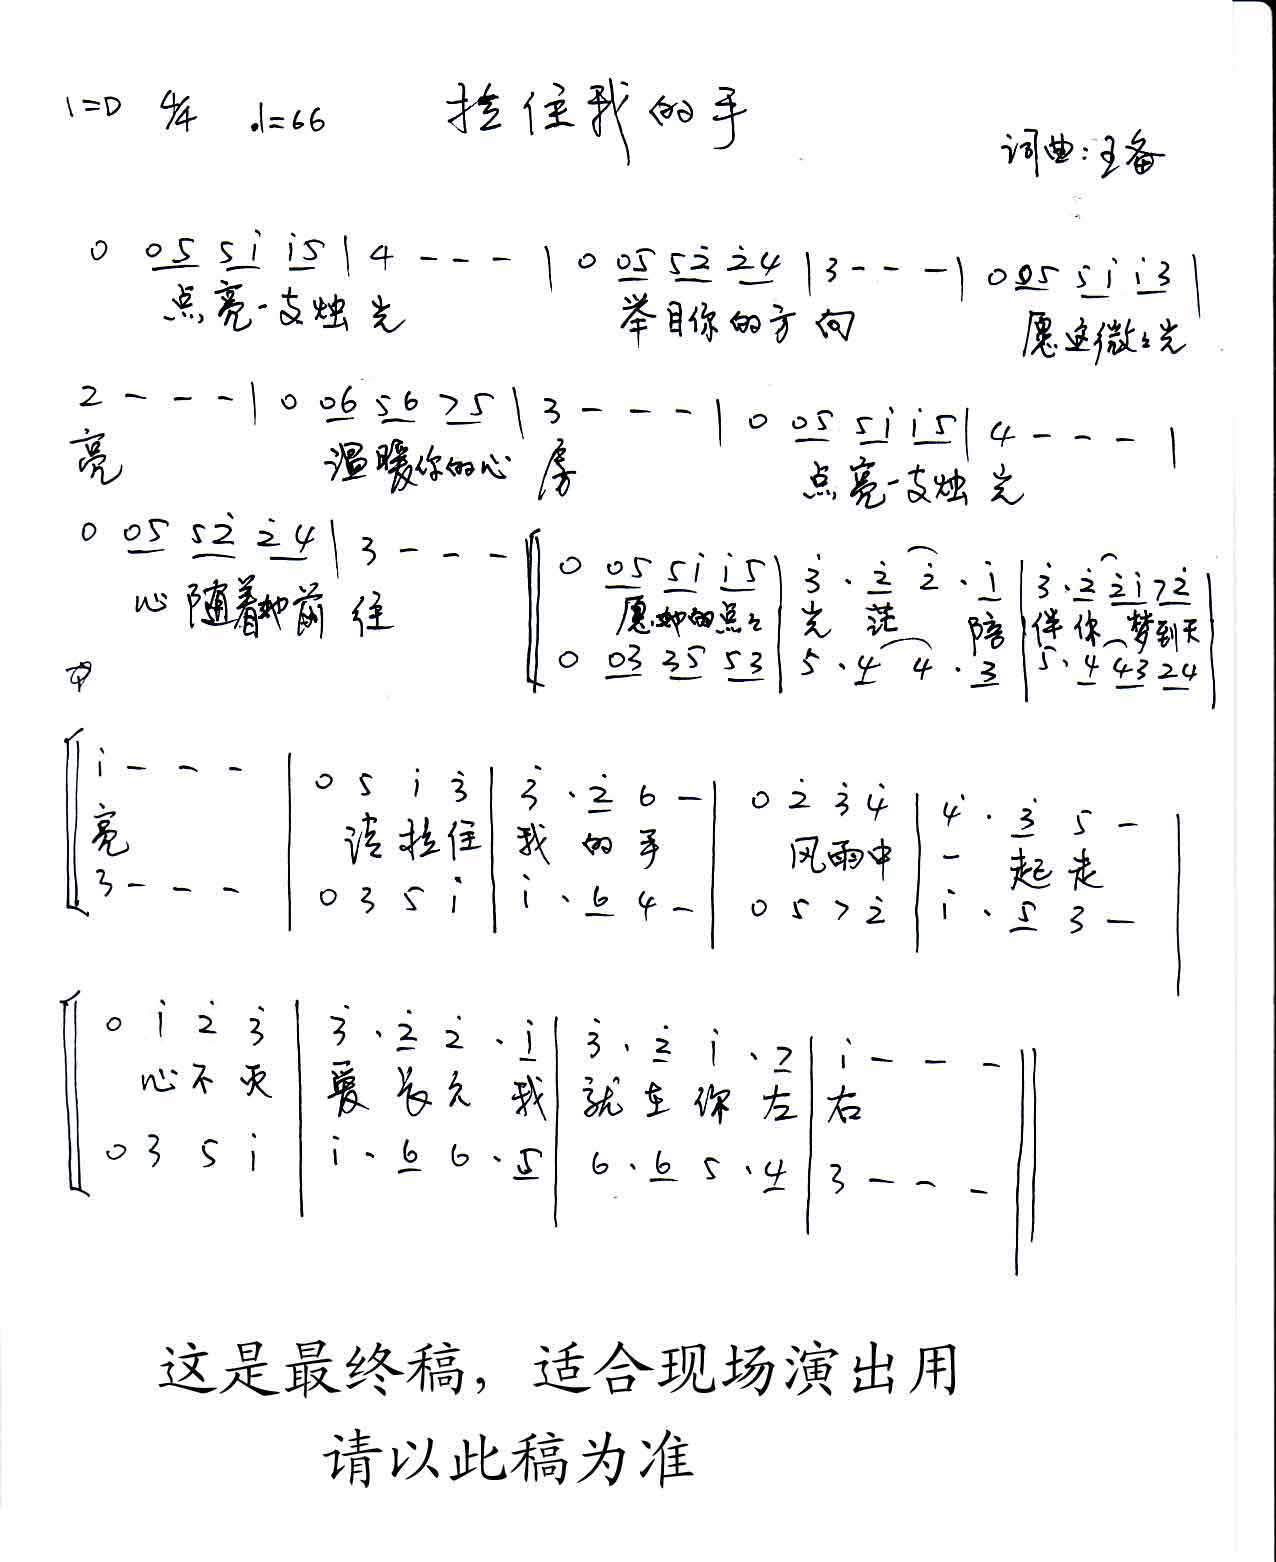 1=D 4/4 ♩=66 拉住我的手
词曲:王备
0 05 5i i5 | 4 - - - | 0 05 52̇ 2̇4 | 3 - - - | 0 05 5i i3 |
点亮一支烛光 举目你的方向 愿这微微光
2 - - - | 0 06 56 75 | 3 - - - | 0 05 5i i5 | 4 - - - |
亮 温暖你的心房 点亮一支烛光
0 05 52̇ 2̇4 | 3 - - -
心随着她前往
0 05 5i i5 | 3̇ · 2̇ 2̇ · i | 3̇ · 2̇ 2̇i 72̇ |
愿她的点点光茫 陪伴你 梦到天
0 03 35 53 | 5 · 4 4 · 3 | 5 · 4 43 24 |
i - - - | 0 5 i 3̇ | 3̇ · 2̇ 6 - | 0 2̇ 3̇ 4̇ | 4̇ · 3̇ 5 - |
亮 请拉住我的手 风雨中一起走
3 - - - | 0 3 5 i | i · 6 4 - | 0 5 7 2̇ | i · 5 3 - |
0 i 2̇ 3̇ | 3̇ · 2̇ 2̇ · i | 3̇ · 2̇ i · 7 | i - - - ||
心不灭 爱长久 我就在你左右
0 3 5 i | i · 6 6 · 5 | 6 · 6 5 · 4 | 3 - - - ||
这是最终稿，适合现场演出用
请以此稿为准